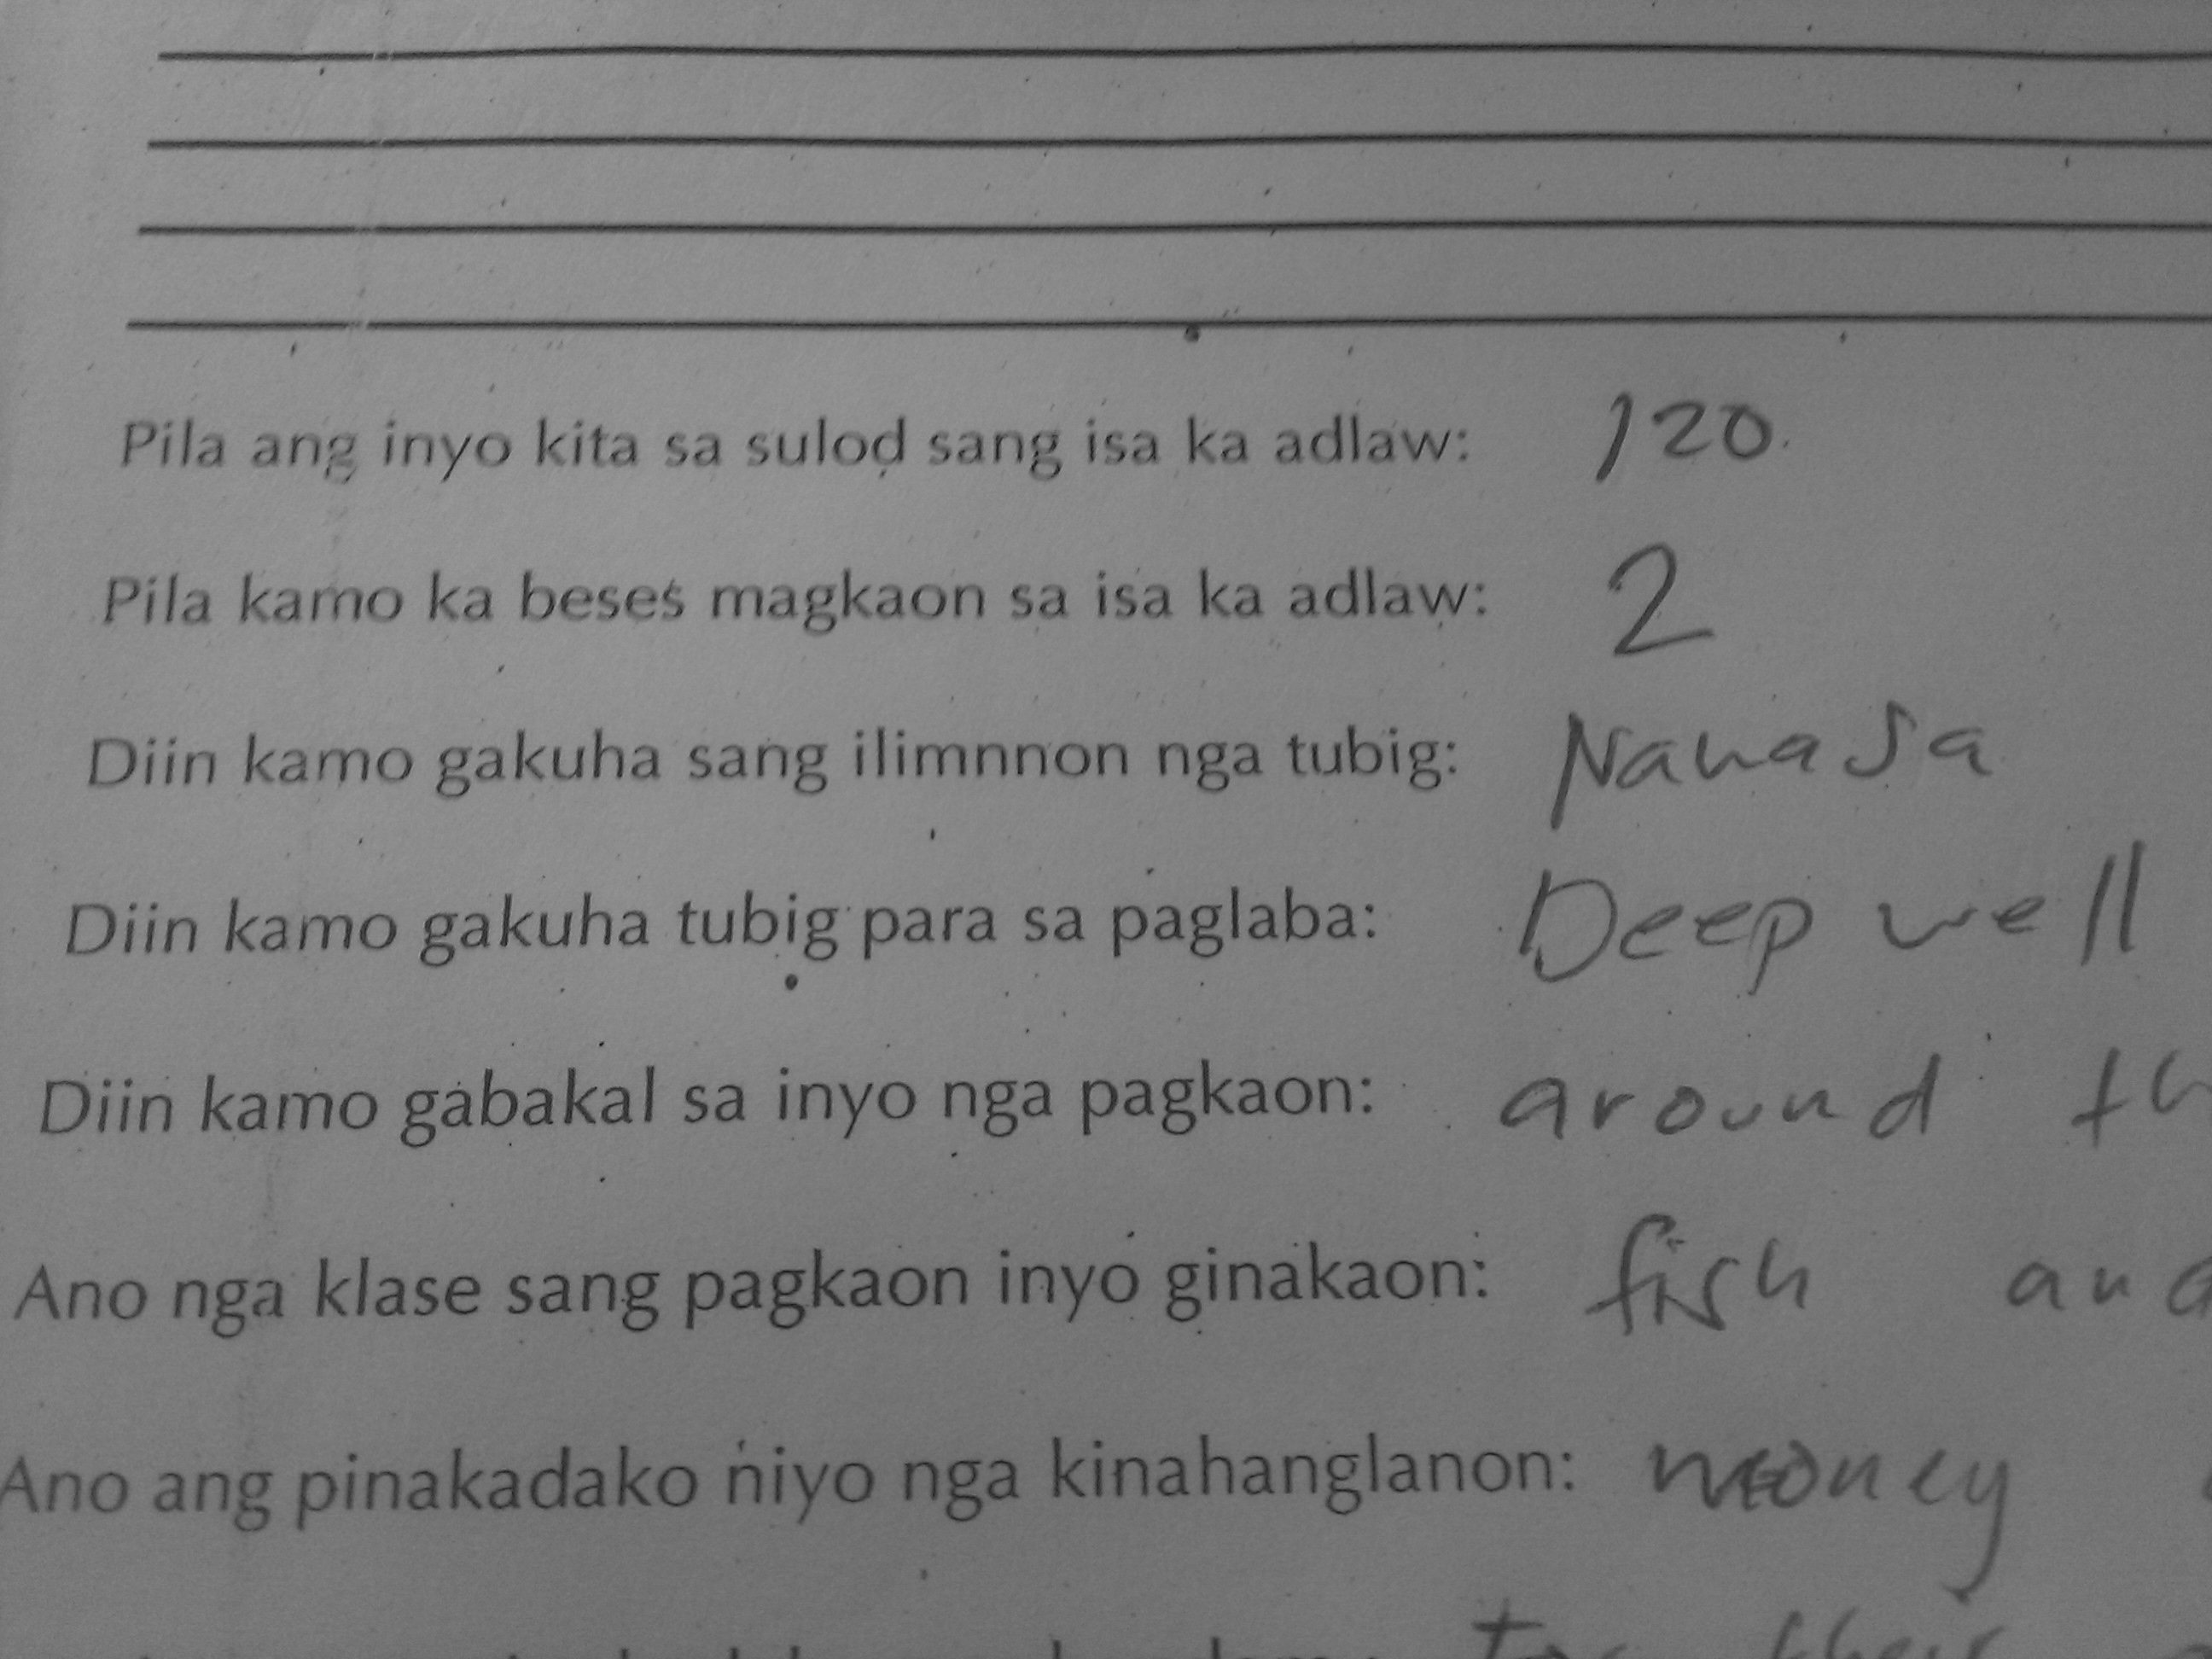 Pila ang inyo kita sa sulod sang isa ka adlaw: 120
Pila kamo ka beses magkaon sa isa ka adlaw: 2
Diin kamo gakuha sang ilimnnon nga tubig: Nawasa
Diin kamo gakuha tubig para sa paglaba: Deep well
Diin kamo gabakal sa inyo nga pagkaon: around
Ano nga klase sang pagkaon inyo ginakaon: fish and
Ano ang pinakadako niyo nga kinahanglanon: money